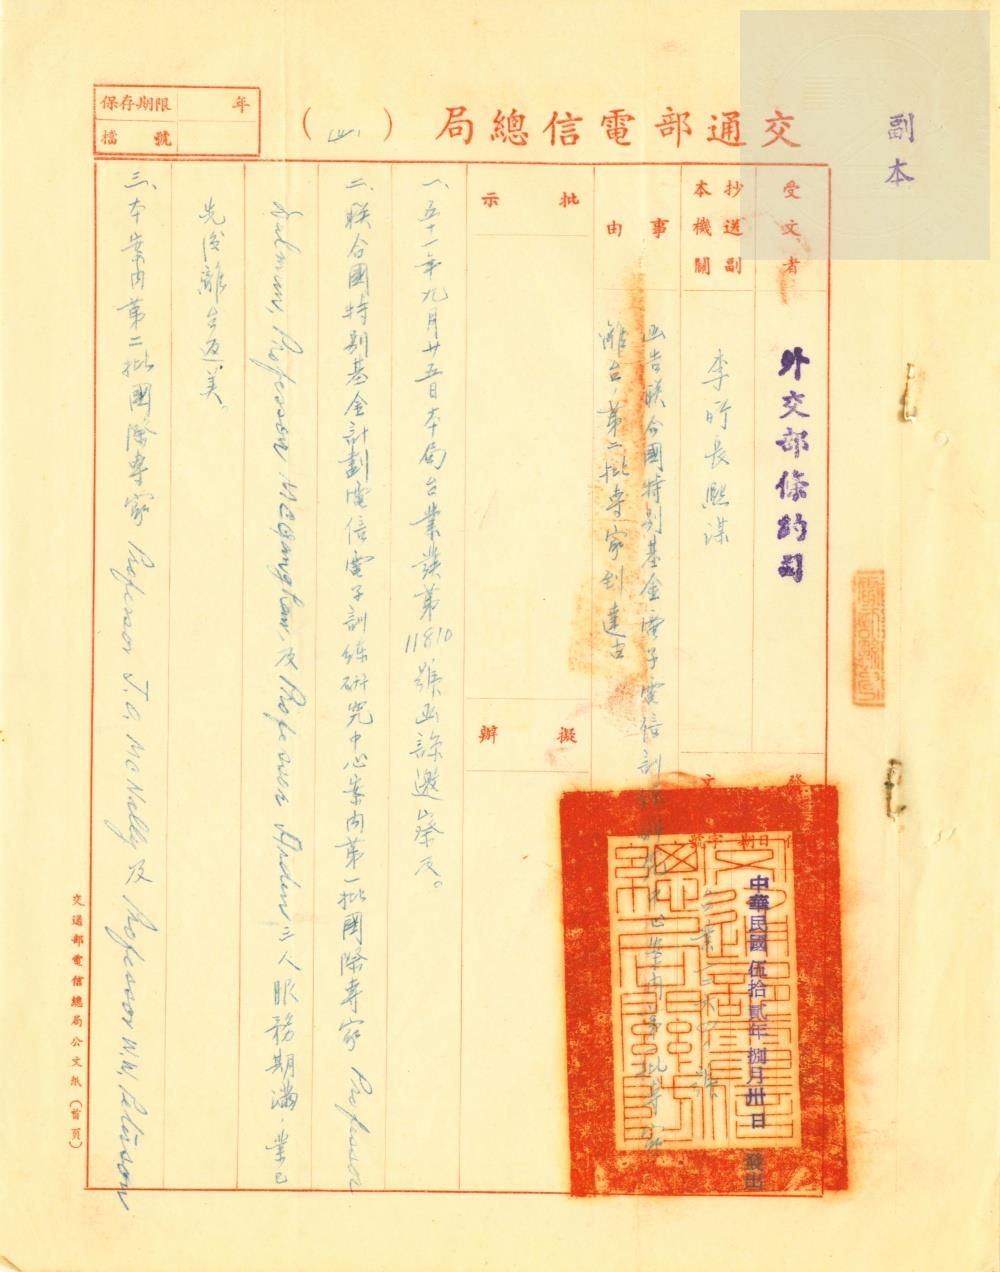 副本
交通部電信總局（函）
保存期限 年
檔 號
受文者
外交部條約司
抄送副本機關
李所長熙謀
事由
函告聯合國特別基金電子電信訓練研究中心案內第一批專家
離台，第二批專家到達由
批示
擬辦
發文
日期 字號
中華民國伍拾貳年捌月卅日
發出
一、五十一年九月廿五日本局台業發第11810號函諒邀鑒及。
二、联合國特别基金計劃電信電子訓练研究中心案内第一批國際專家 Professor
及 Professor 三人服務期滿，業已
先後離台返美。
三、本案内第二批國際專家 Professor J. A. McNally 及 Professor W. W. Peterson
交通部電信總局公文紙（首頁）